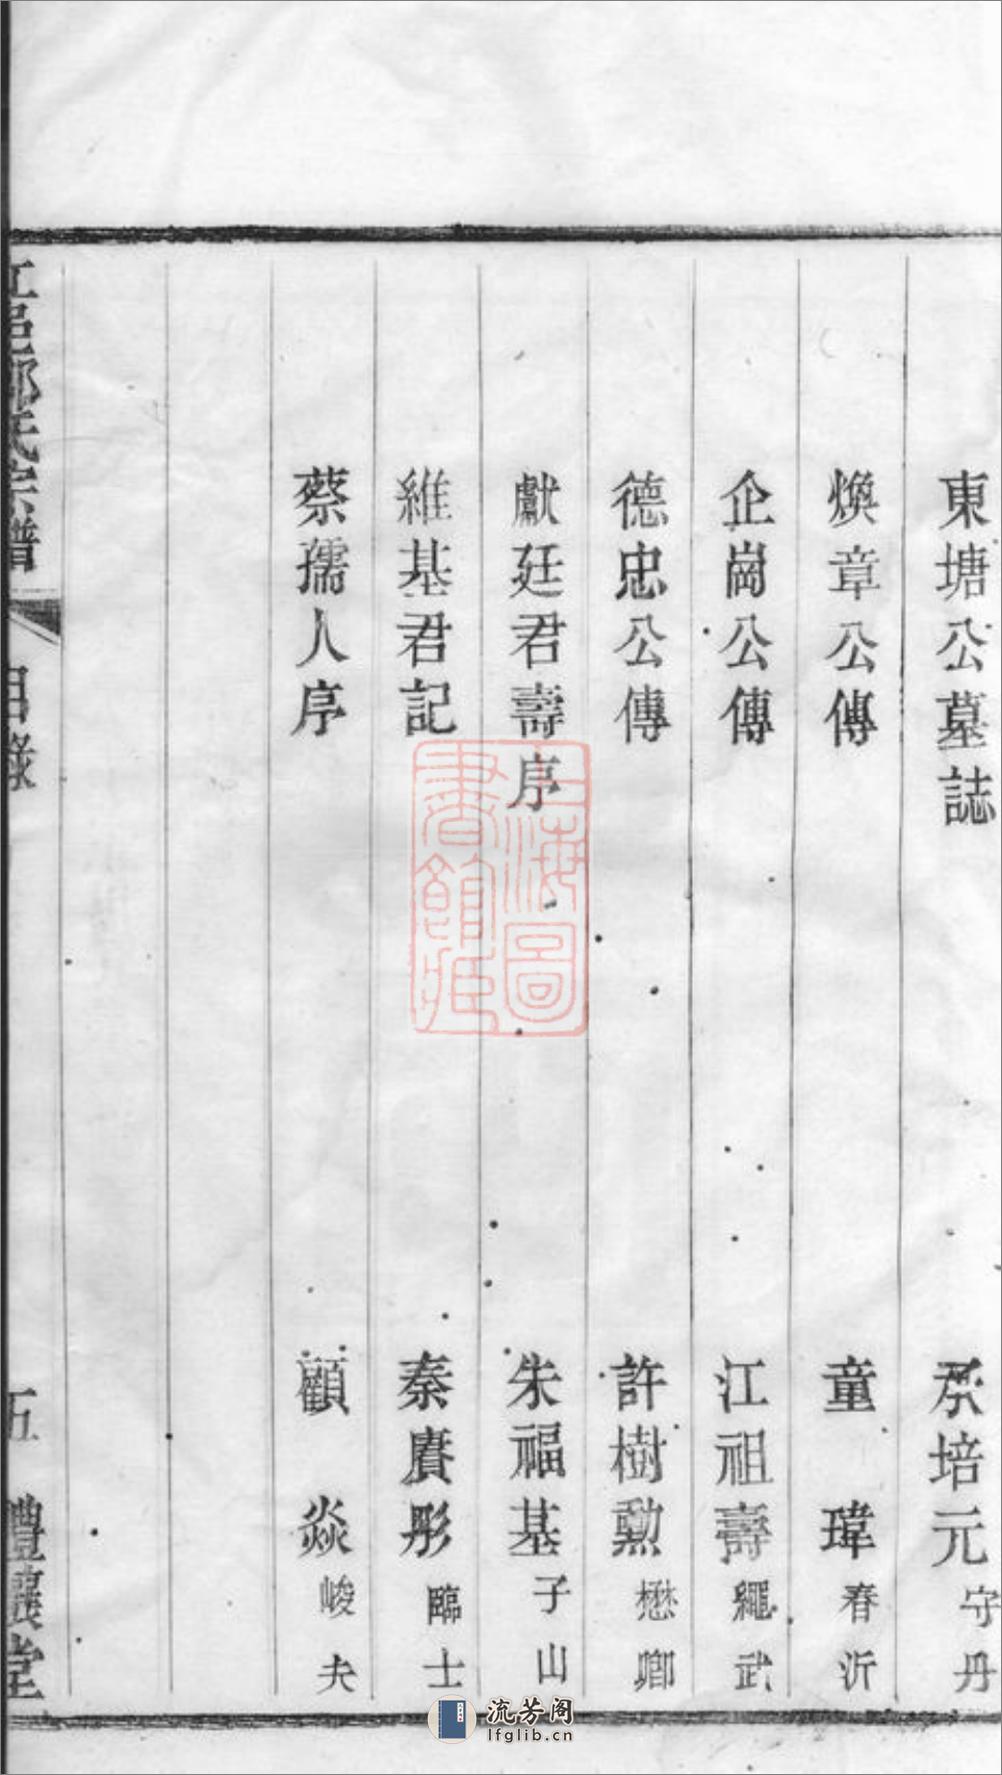 東塘公墓誌 承培元 守丹
煥章公傳 童瑋 春沂
企崗公傳 江祖壽 繩武
德忠公傳 許樹勳 懋卿
獻廷君壽序 朱福基 子山
維基君記 秦賡彤 臨士
蔡孺人序 顧焱 峻夫
江邑鄭氏宗譜 目錄 五 禮讓堂
上海圖書館藏
流芳阁
lfglib.cn